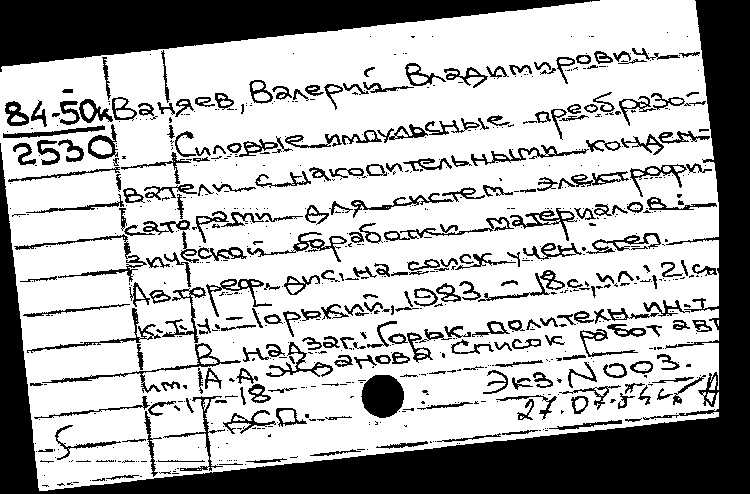 84-50к Ваняев, Валерий Владимирович.
2530 Силовые импульсные преобразо-
ватели с накопительными конден-
саторами для систем электрофи-
зической обработки материалов:
Автореф. дис. на соиск учен. степ.
к.т.н. - Горький, 1983. - 18с., ил.; 21см
В надзаг.: Горьк. политехн. ин-т
им. А.А. Жданова. Список работ авт
с. 17-18 Экз. N 003.
ДСП. 27.07.